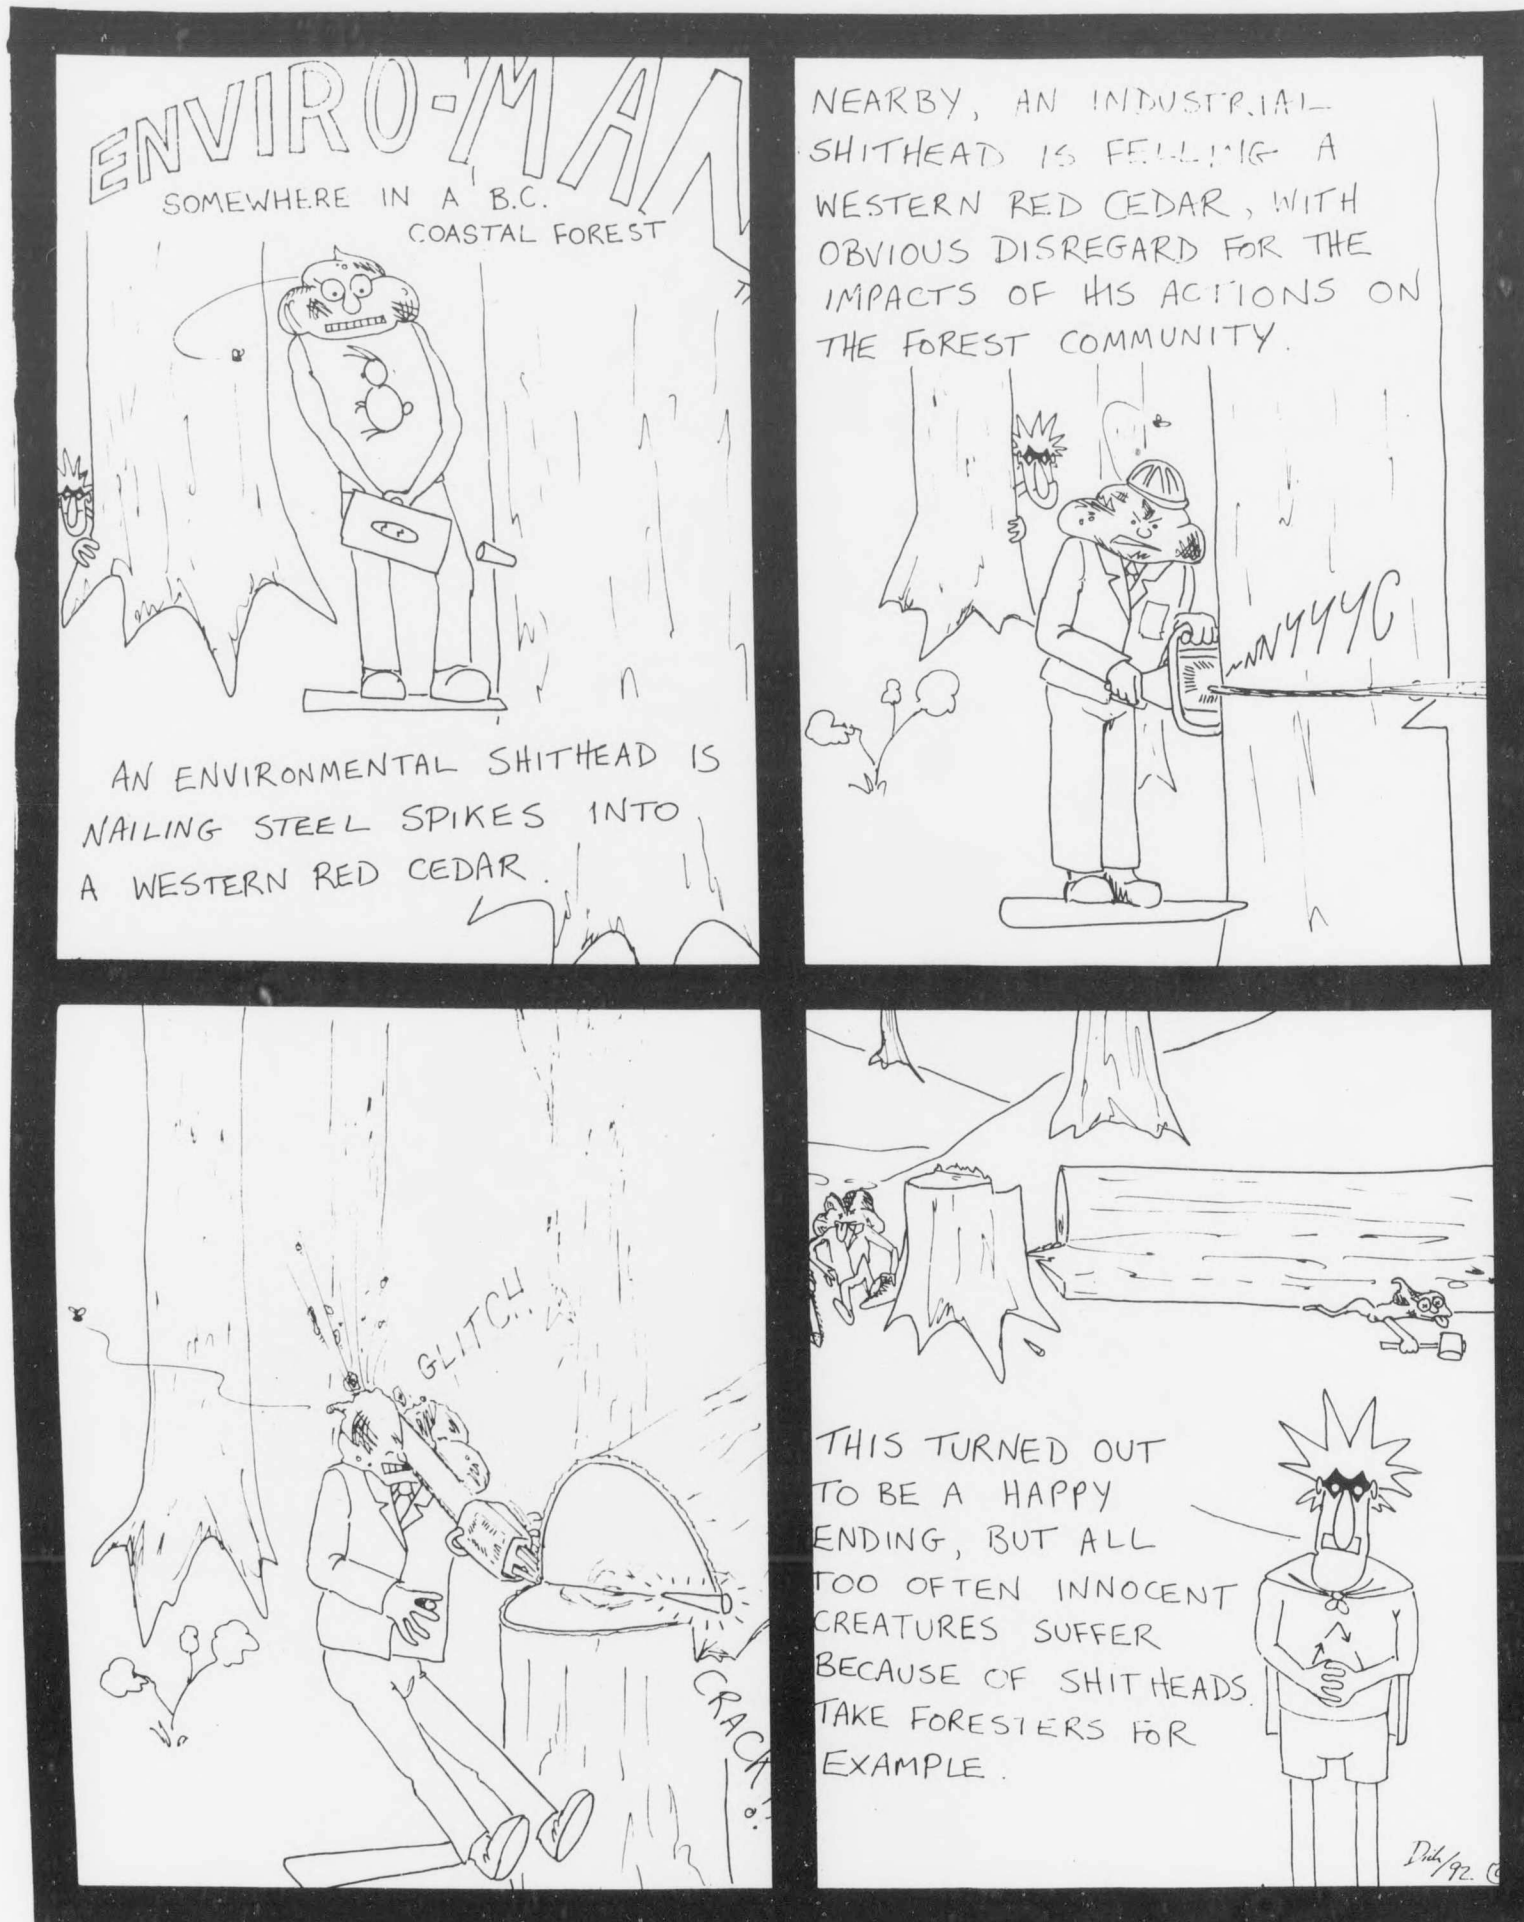 ENVIRO-MAN
SOMEWHERE IN A B.C.
COASTAL FOREST
AN ENVIRONMENTAL SHITHEAD IS
NAILING STEEL SPIKES INTO
A WESTERN RED CEDAR.
NEARBY, AN INDUSTRIAL
SHITHEAD IS FELLING A
WESTERN RED CEDAR, WITH
OBVIOUS DISREGARD FOR THE
IMPACTS OF HIS ACTIONS ON
THE FOREST COMMUNITY.
GLITCH
CRACK!!
THIS TURNED OUT
TO BE A HAPPY
ENDING, BUT ALL
TOO OFTEN INNOCENT
CREATURES SUFFER
BECAUSE OF SHITHEADS.
TAKE FORESTERS FOR
EXAMPLE.
/92. ©